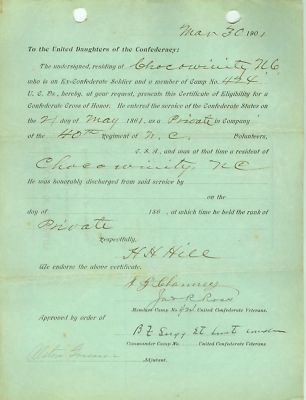 Mar 30 1901
To the United Daughters of the Confederacy:
The undersigned, residing at Chocowinity, N.C.
who is an Ex-Confederate Soldier and a member of Camp No.
U. C. Vs., hereby, at your request, presents this Certificate of Eligibility for a
Confederate Cross of Honor. He entered the service of the Confederate States on
the day of May 1861, as a Private in Company
of the 40th Regiment of N. C. Volunteers,
C. S. A., and was at that time a resident of
Chocowinity, NC
He was honorably discharged from said service by
on the
day of 186 , at which time he held the rank
of Private
Respectfully,
H H Hill
We endorse the above certificate.
Members Camp No. United Confederate Veterans.
Approved by order of
Commander Camp No. United Confederate Veterans.
Adjutant.